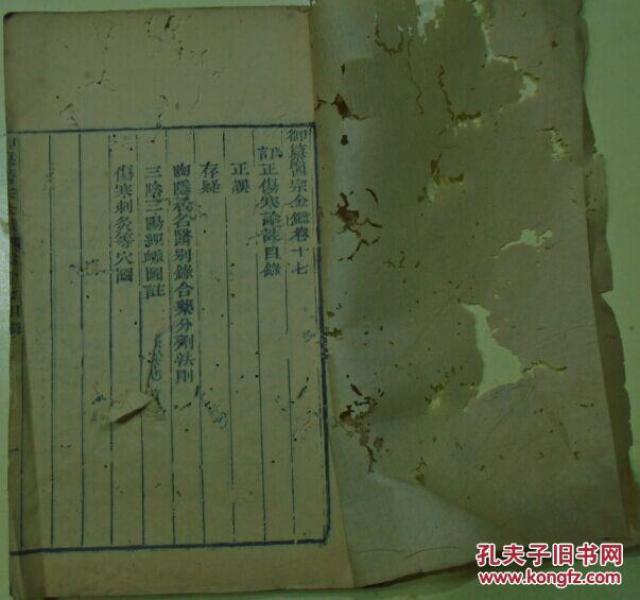 御纂醫宗金鑑卷十七
訂正傷寒論註目錄
正誤
存疑
陶隱居名醫別錄合藥分劑法則
三陰三陽經絡圖註
傷寒刺灸等穴圖
孔夫子旧书网
www.kongfz.com